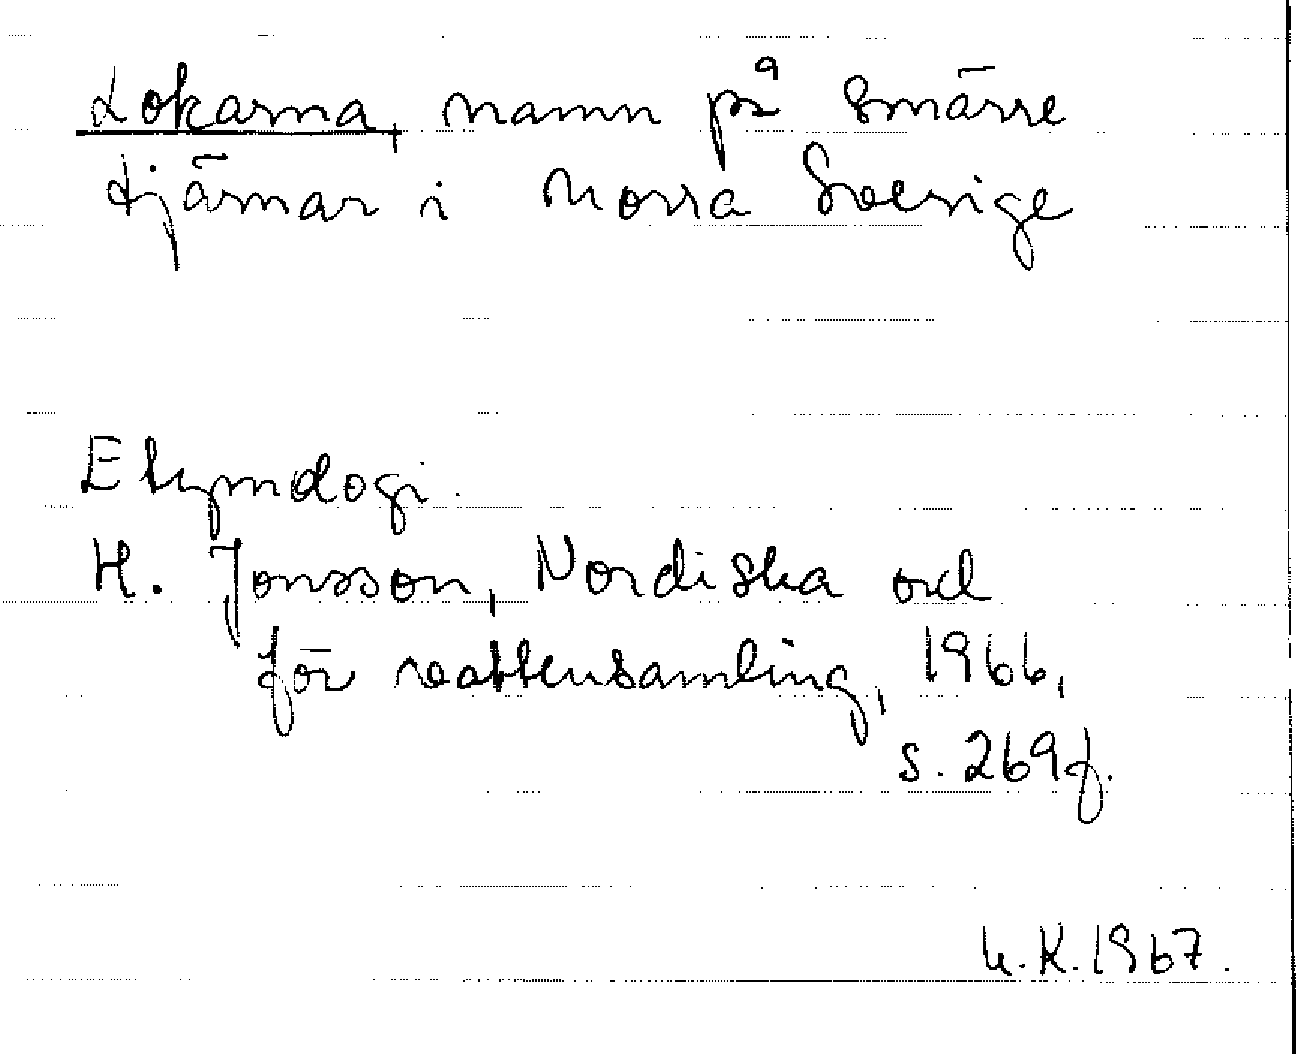 Lokarna, namn på smärre
tjärnar i norra Sverige
Etymologi.
H. Jonsson, Nordiska ord
för vattensamling, 1966,
s. 269f.
U.K. 1967.